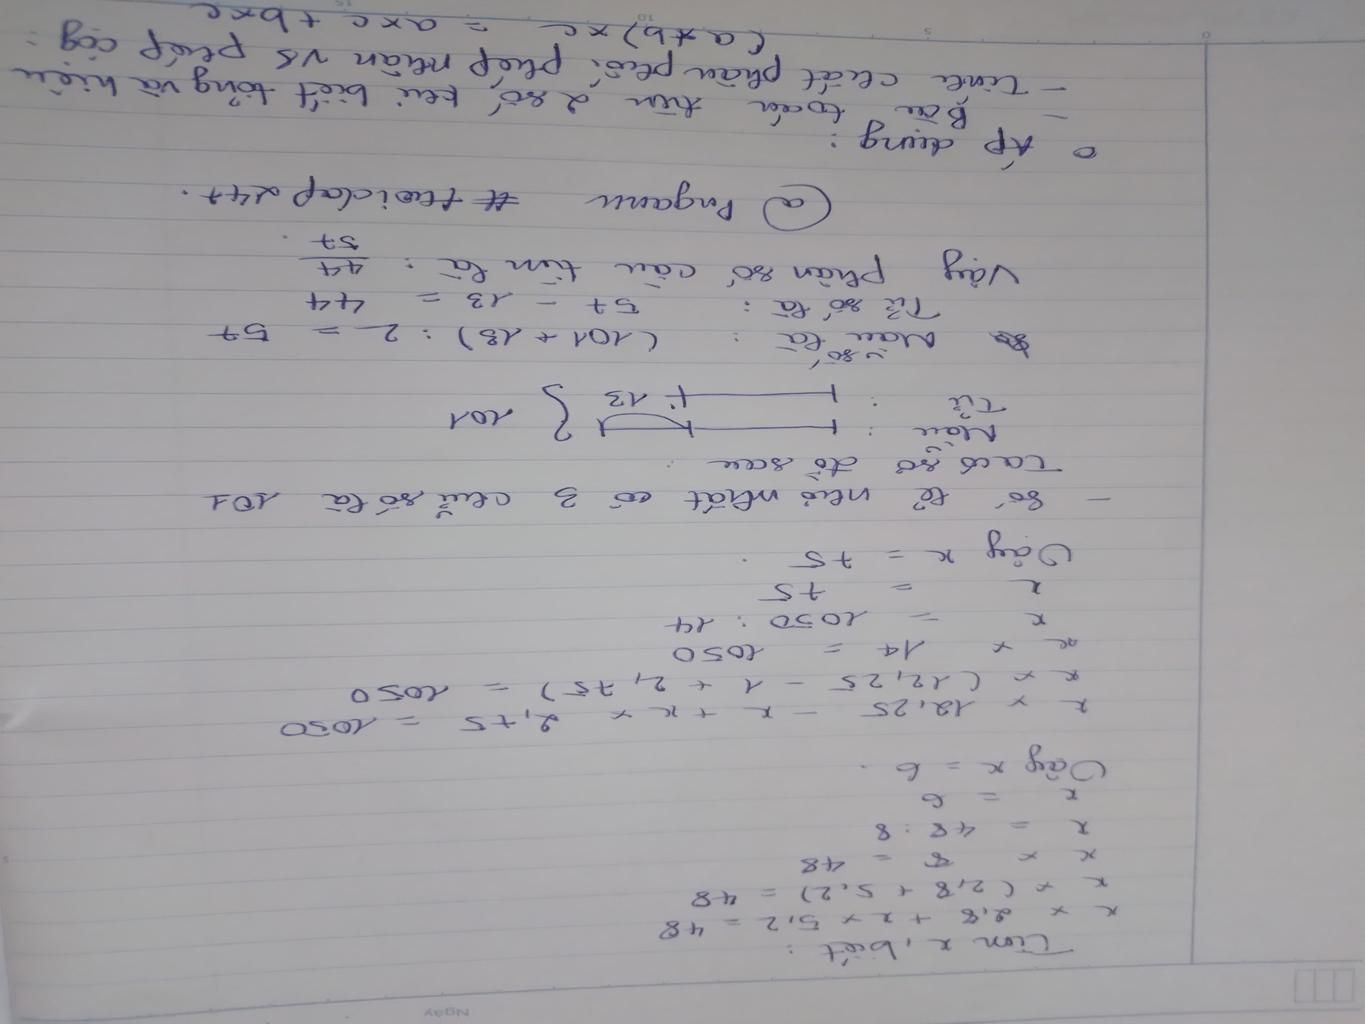 Ngày
Tìm x, biết :
x × 2,8 + x × 5,2 = 48
x × (2,8 + 5,2) = 48
x × 8 = 48
x = 48 : 8
x = 6
Vậy x = 6 .
x × 12,25 - x + x × 2,75 = 1050
x × (12,25 - 1 + 2,75) = 1050
x × 14 = 1050
x = 1050 : 14
x = 75
Vậy x = 75 .
- Số lẻ nhỏ nhất có 3 chữ số là 101
Ta có sơ đồ sau :
Mẫu :
Tử : 13 101
Mẫu số là : (101 + 13) : 2 = 57
Tử số là : 57 - 13 = 44
Vậy phân số cần tìm là : 44/57 .
@ Pngann # hoidap247.
o Áp dụng :
- Bài toán tìm 2 số khi biết tổng và hiệu
- Tính chất phân phối phép nhân vs phép cộg :
(a+b) × c = a×c + b×c
0 5 10 15